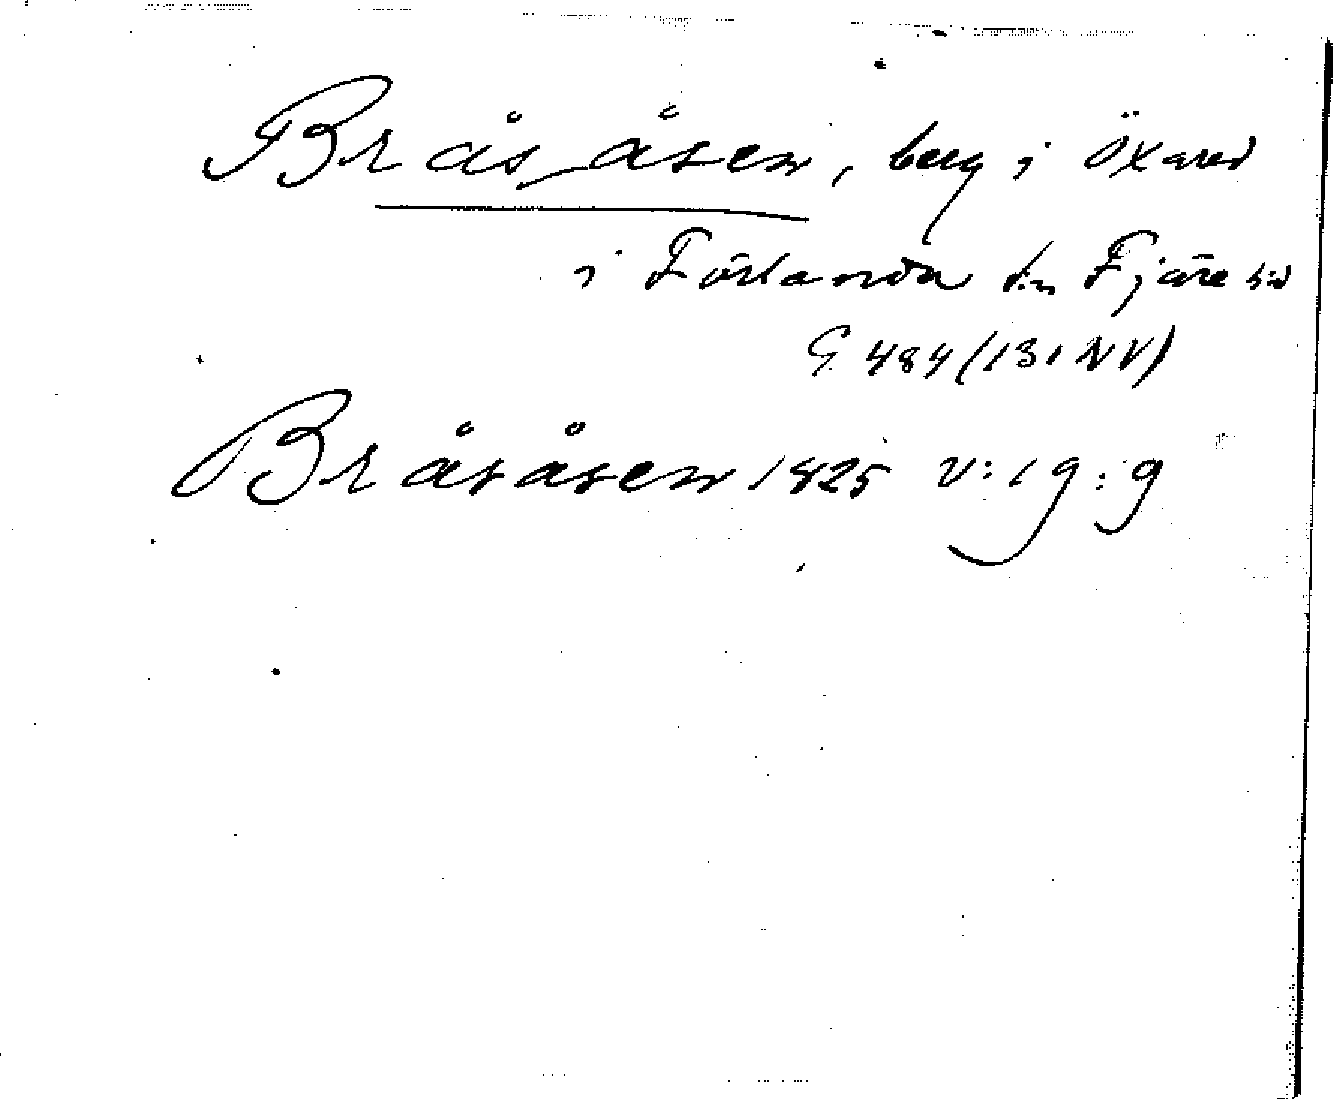 Brås_åsen, berg i Öxared
i Förlanda sn Fjäre hd
G 484 (131 NV)
Bråsåsen 1825 V:19:9